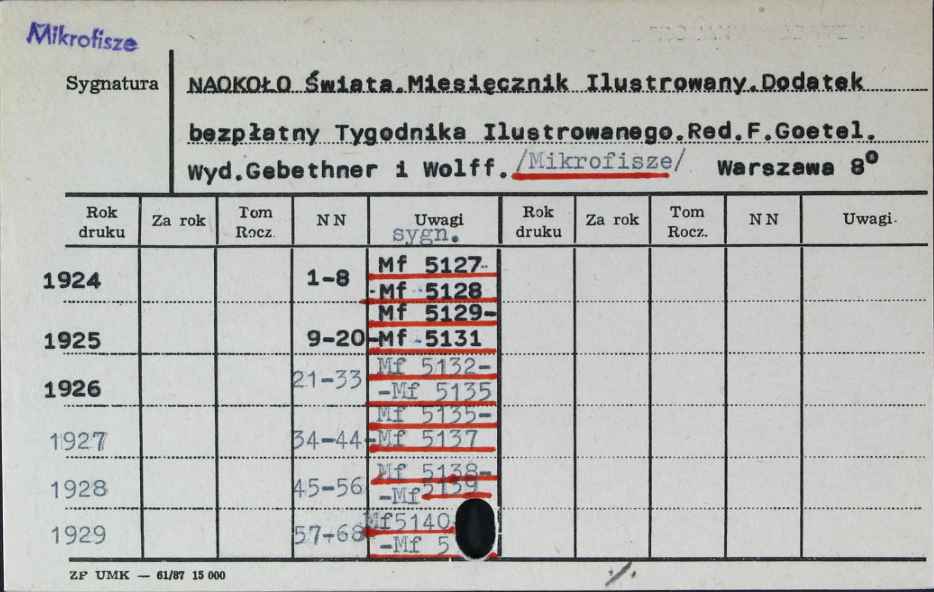 Mikrofisze
Sygnatura
NAOKOŁO Świata.Miesięcznik Ilustrowany.Dodatek
bezpłatny Tygodnika Ilustrowanego.Red.F.Goetel.
Wyd.Gebethner i Wolff. /Mikrofisze/ Warszawa 8°
Rok druku Za rok Tom Rocz. NN Uwagi Rok druku Za rok Tom Rocz. NN Uwagi
sygn.
1924 1-8 Mf 5127-
-Mf 5128
Mf 5129-
1925 9-20 -Mf 5131
1926 21-33 Mf 5132-
-Mf 5135
Mf 5135-
1927 34-44 -Mf 5137
Mf 5138-
1928 45-56 -Mf 5139
1929 57-68 Mf5140
-Mf 5
ZP UMK — 61/87 15 000
./.